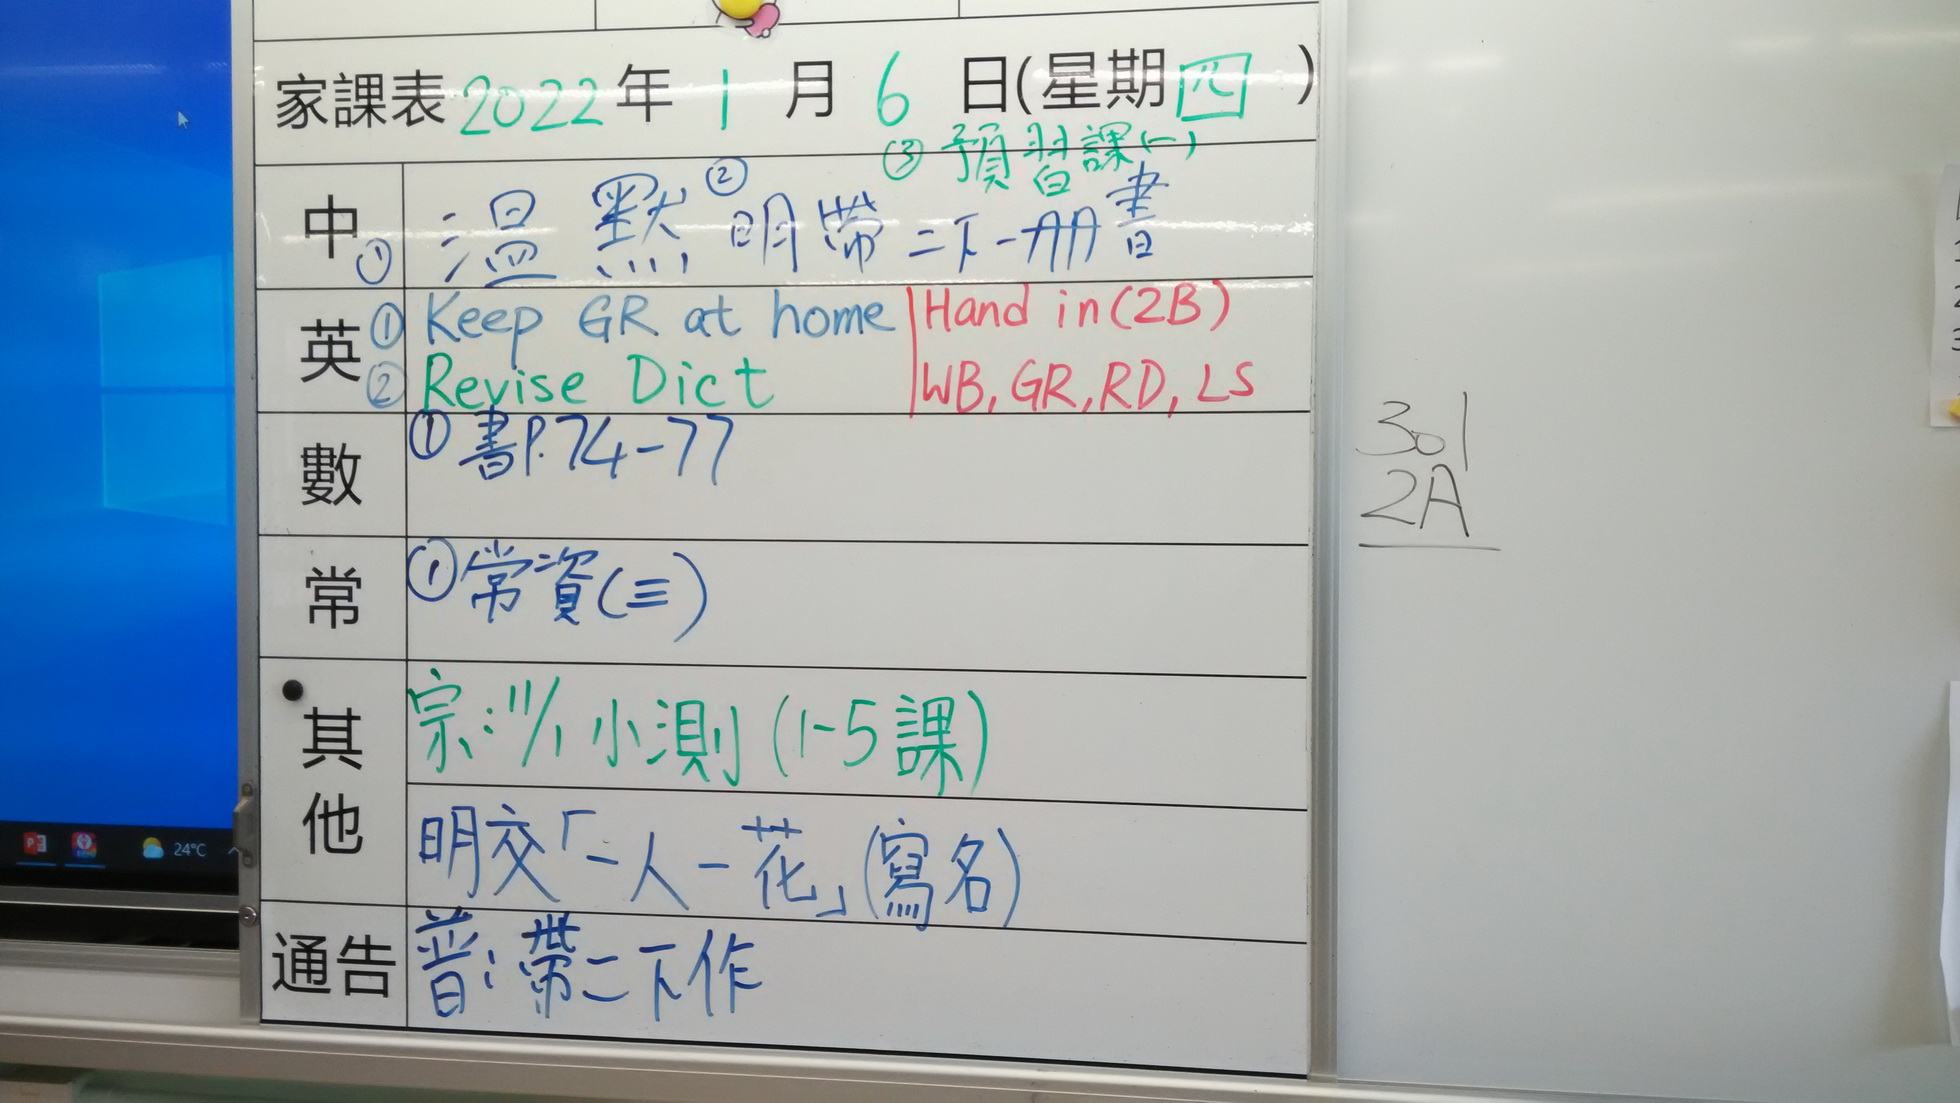 家課表 2022年 1 月 6 日(星期四)
③ 預習課(一)
中 ① 温默 ② 明帶二下一册書
英 ① Keep GR at home | Hand in (2B)
② Revise Dict | WB, GR, RD, LS
數 ① 書P.74-77
常 ① 常資(三)
其他 宗:11/1 小測 (1-5課)
明交「一人一花」(寫名)
通告 普:帶二下作
301
2A
24°C